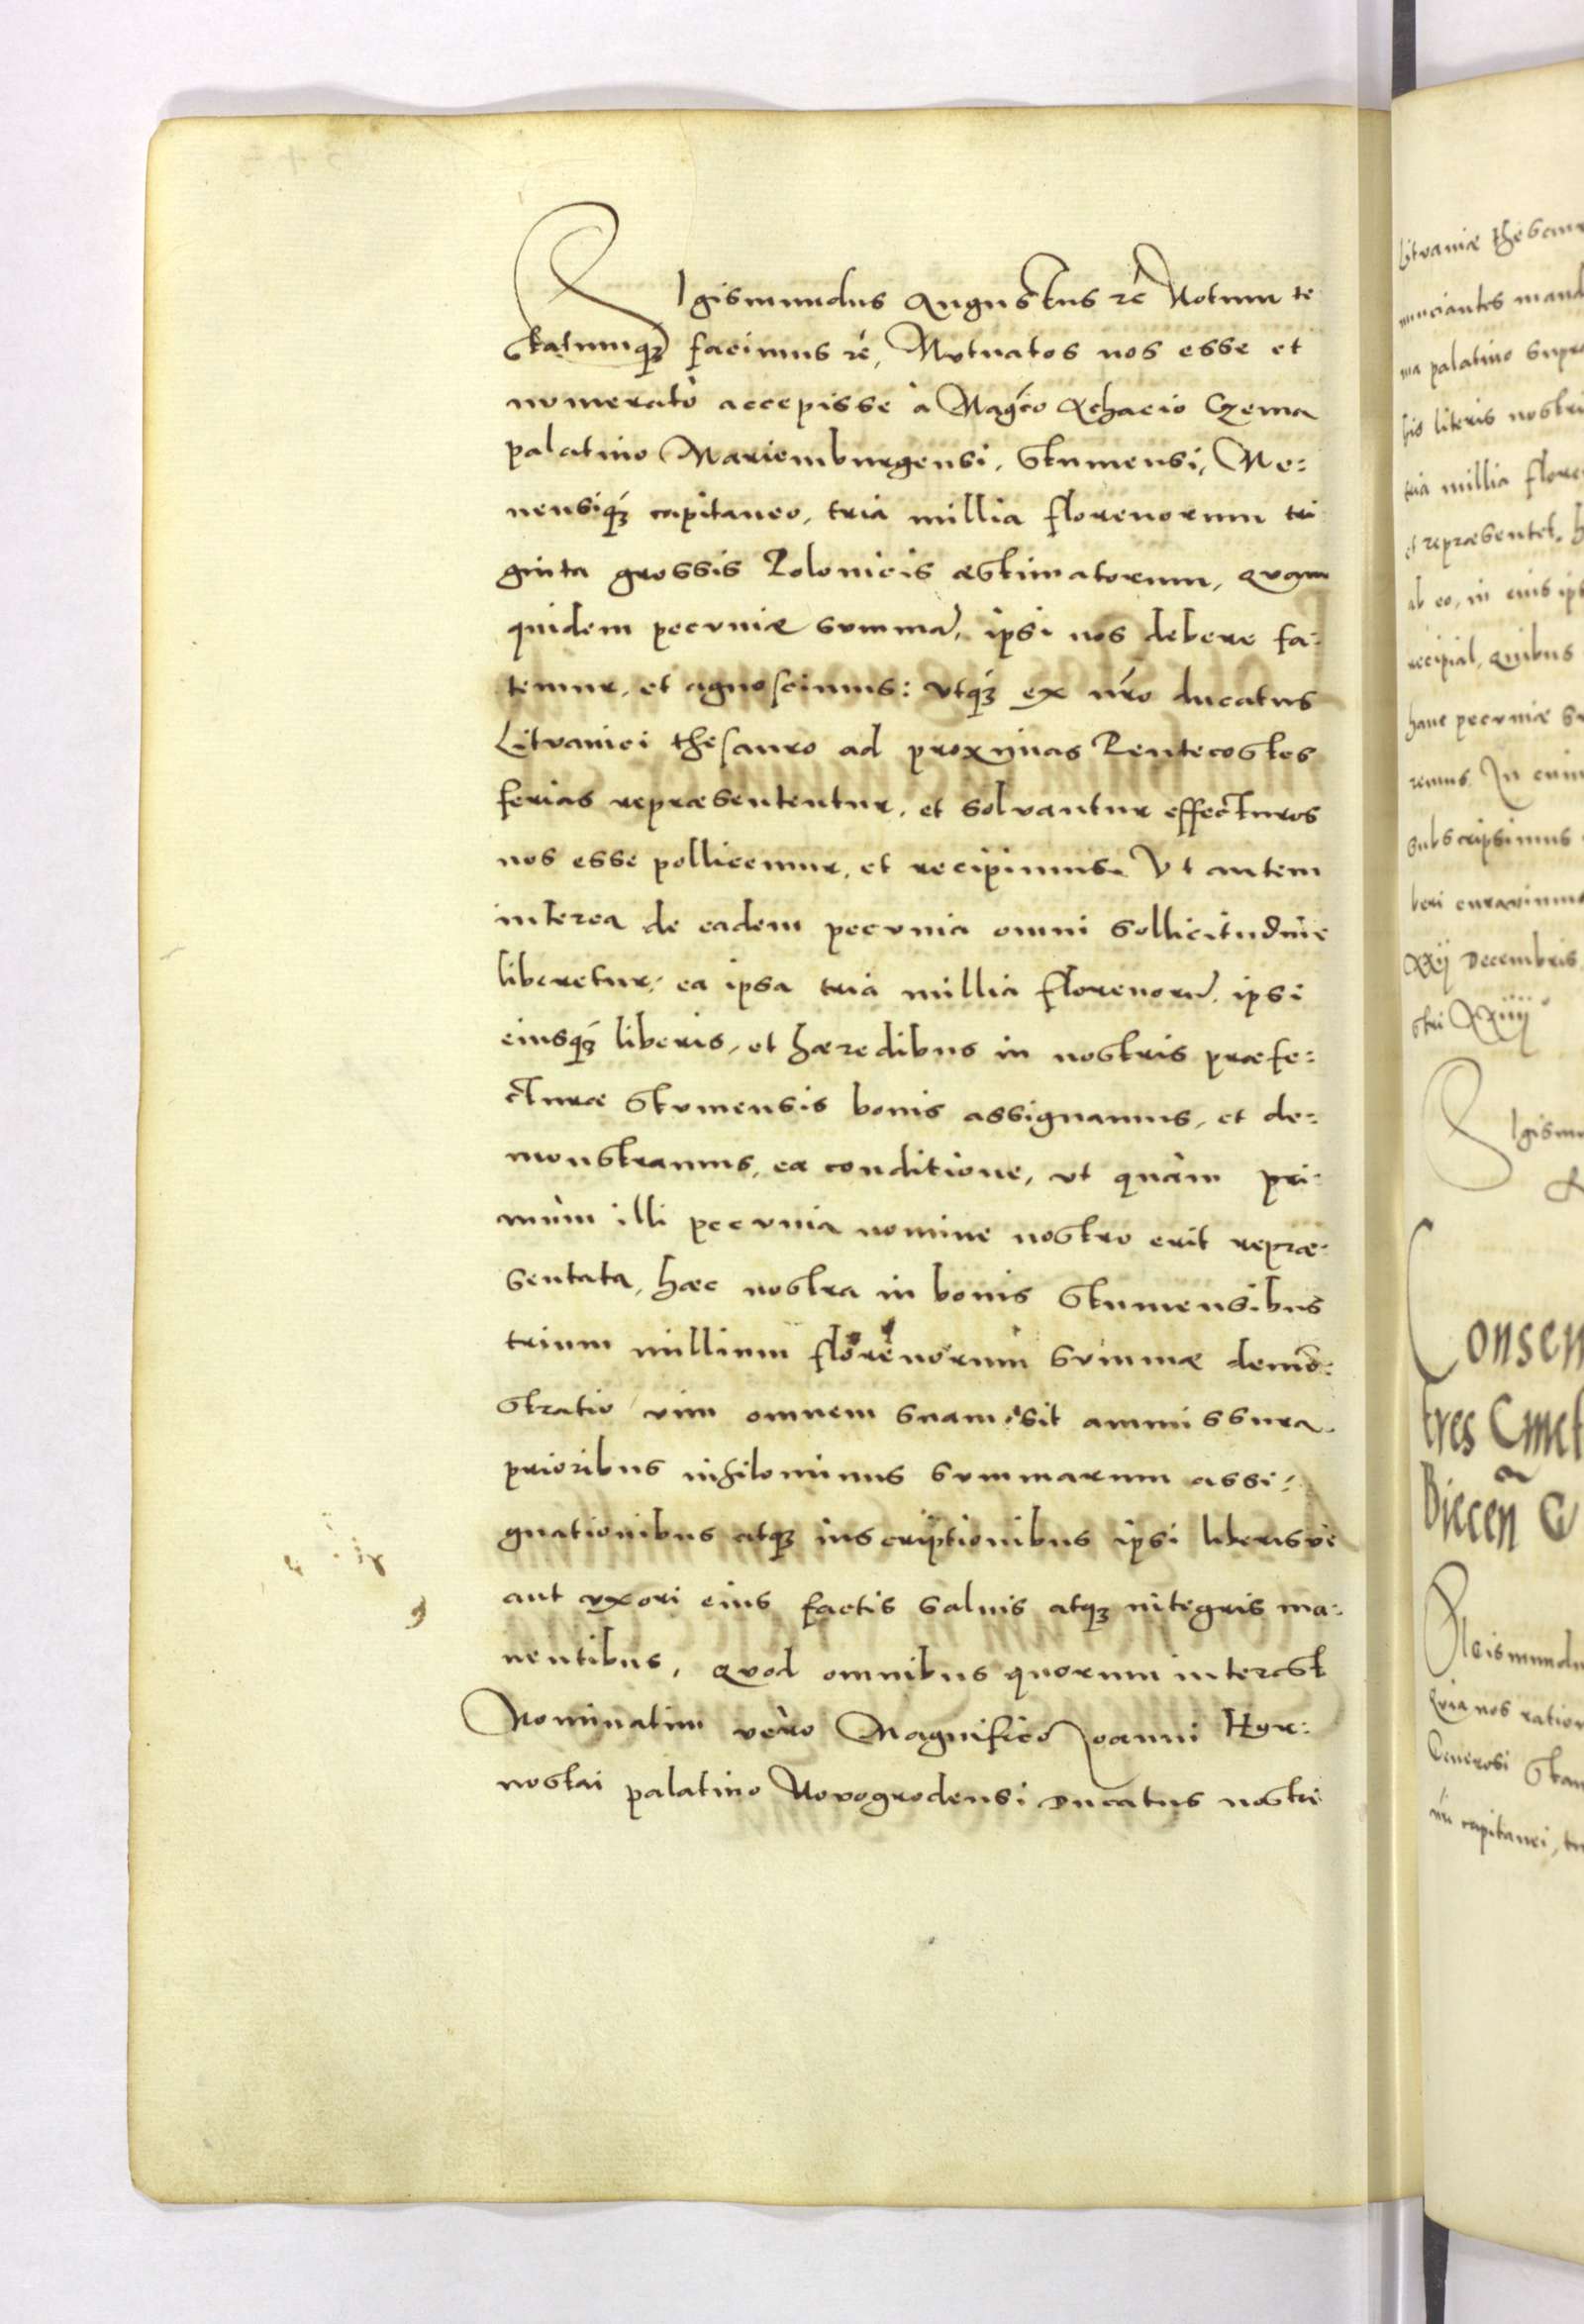 Sigismundus Augustus rc̃ Notum te
statumq́ȝ facimus rc̃, Mutuatos nos esse et
numerato accepisse à Magco Achacio Czema
palatino Mariemburgensi, Stumensi, Me:
nensiq́ȝ capitaneo, tria millia florenorum tri
ginta grossis Polonicis æstimatorum, quam
quidem pecuniæ summã, ipsi nos debere fa:
temur, et agnoscimus: utq́ȝ ex nr̃o ducatus
Lituanici thesauro ad proximas Pentecostes
ferias repræsententur, et solvantur effecturos
nos esse pollicemur, et recipimus. Ut autem
interea de eadem pecunia omni sollicitudine
liberetur, ea ipsa tria millia florenorũ, ipsi
eiusq́ȝ liberis, et hæredibus in nostris præfe:
cturæ Stumensis bonis assignamus, et de:
monstramus, ea conditione, ut quàm pri:
mùm illi pecunia nomine nostro erit repræ:
sentata, hæc nostra in bonis Stumensibus
trium millium florenorum summæ demõ:
stratio vim omnem suam sit ammissura,
prioribus nihilominus summarum assi:
gnationibus atqȝ inscriptionibus ipsi liberisve
aut uxori eius factis salvis atqȝ integris ma:
nentibus, quod omnibus quorum interest
Nominatim verò Magnifico Joanni Hor:
nostai palatino Novogrodensi Ducatus nostri
Lituaniæ thesaur
nunciantes mand
ma palatino supra
his literis nostri
tria millia flore
et repræsentet, h
ab eo, in eius ips
recipiat, quibus
hanc pecuniæ su
remus. In cuiu
subscripsimus
beri curavimus
XXij Decembris
stri XXiiij
Sigismu
R
Consen
tres Cmet
Biecen C
Sigismundu
Quia nos ration
Generosi Stan
nr̃i capitanei, tu